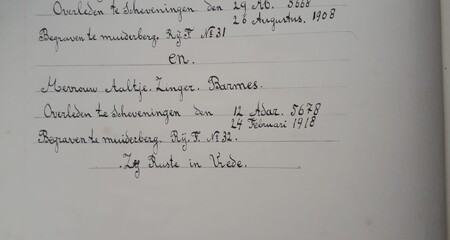 Overleden te scheveningen den 29 Ab. 5668
26 Augustus. 1908
Begraven te muiderberg. Rÿ. F. № 31
en.
Mevrouw Aaltje. Zinger. Barmes.
Overleden te scheveningen den 12 Adar. 5678
24 Februari 1918
Begraven te muiderberg. Rÿ. F. № 32.
Zÿ Ruste in Vrede.